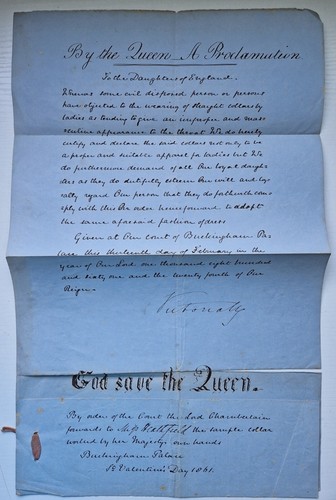 By the Queen A Proclamation
To the Daughters of England.
Whereas some evil disposed person or persons
have objected to the wearing of straight collars by
ladies as tending to give an improper and mas
culine appearance to the throat We do hereby
certify and declare the said collars not only to be
a proper and suitable apparel for ladies but We
do furthermore demand of all Our loyal daugh
ters as they do dutifully esteem Our will and loy
ally regard Our person that they do forthwith com
ply with this Our order henceforward to adopt
the same aforesaid fashion of dress
Given at Our court of Buckingham Pa
lace this thirteenth day of February in the
year of Our Lord one thousand eight hundred
and sixty one and the twenty fourth of Our
Reign.
God save the Queen.
By order of the Court the Lord Chamberlain
forwards to Miss the sample collar
worked by her Majesty's own hands
Buckingham Palace
St Valentine's Day 1861.